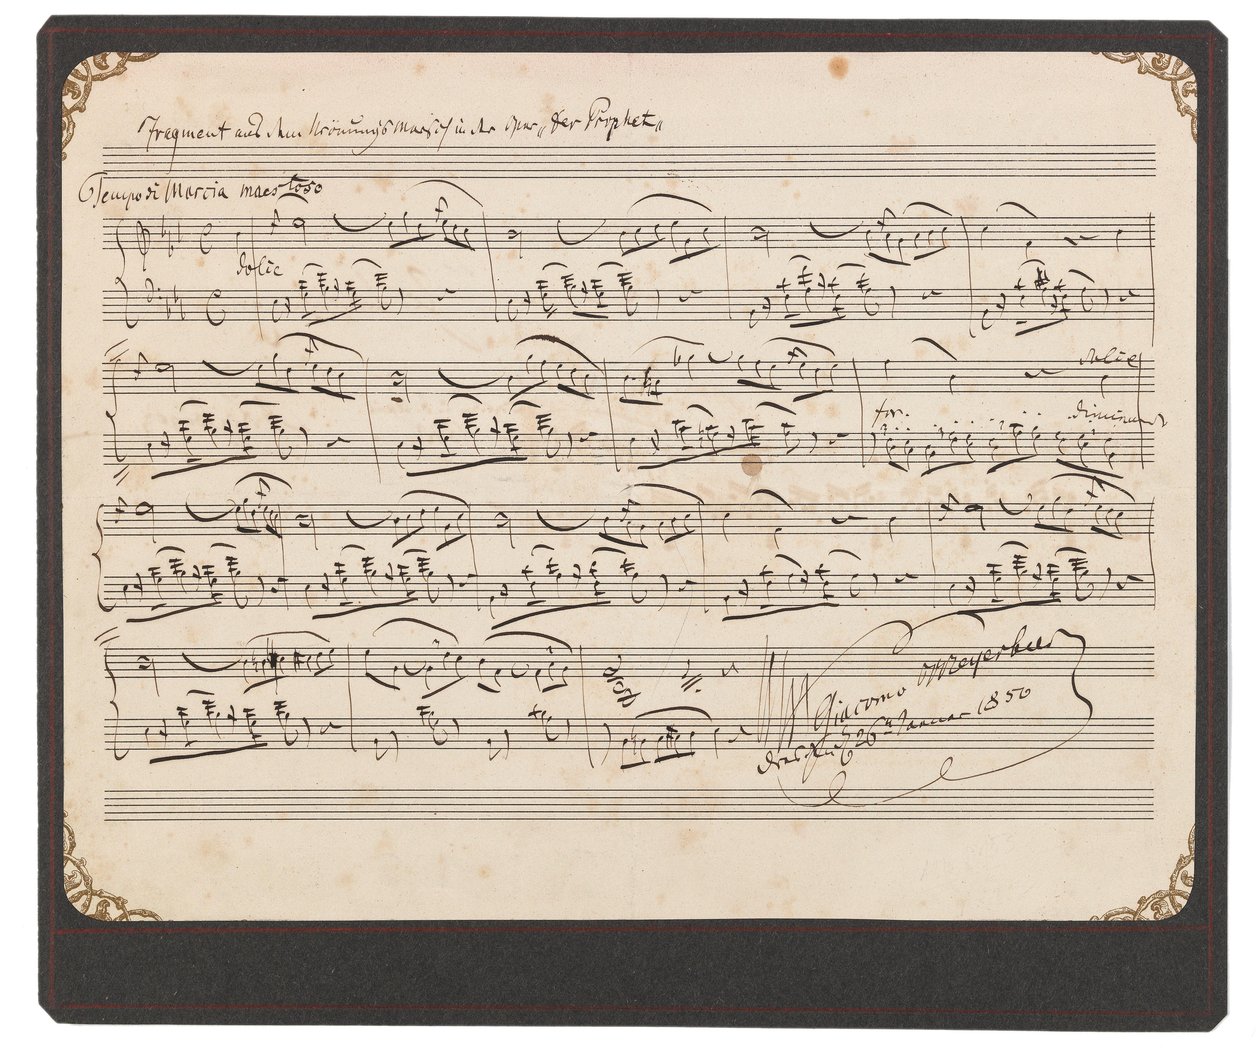 Fragment aus dem Krönungsmarsch in der Oper „Der Prophet„
Tempo di Marcia maestoso
dolce
dolce
for.
diminuend
Giacomo Meyerbeer
Dresden 26ten Januar 1850